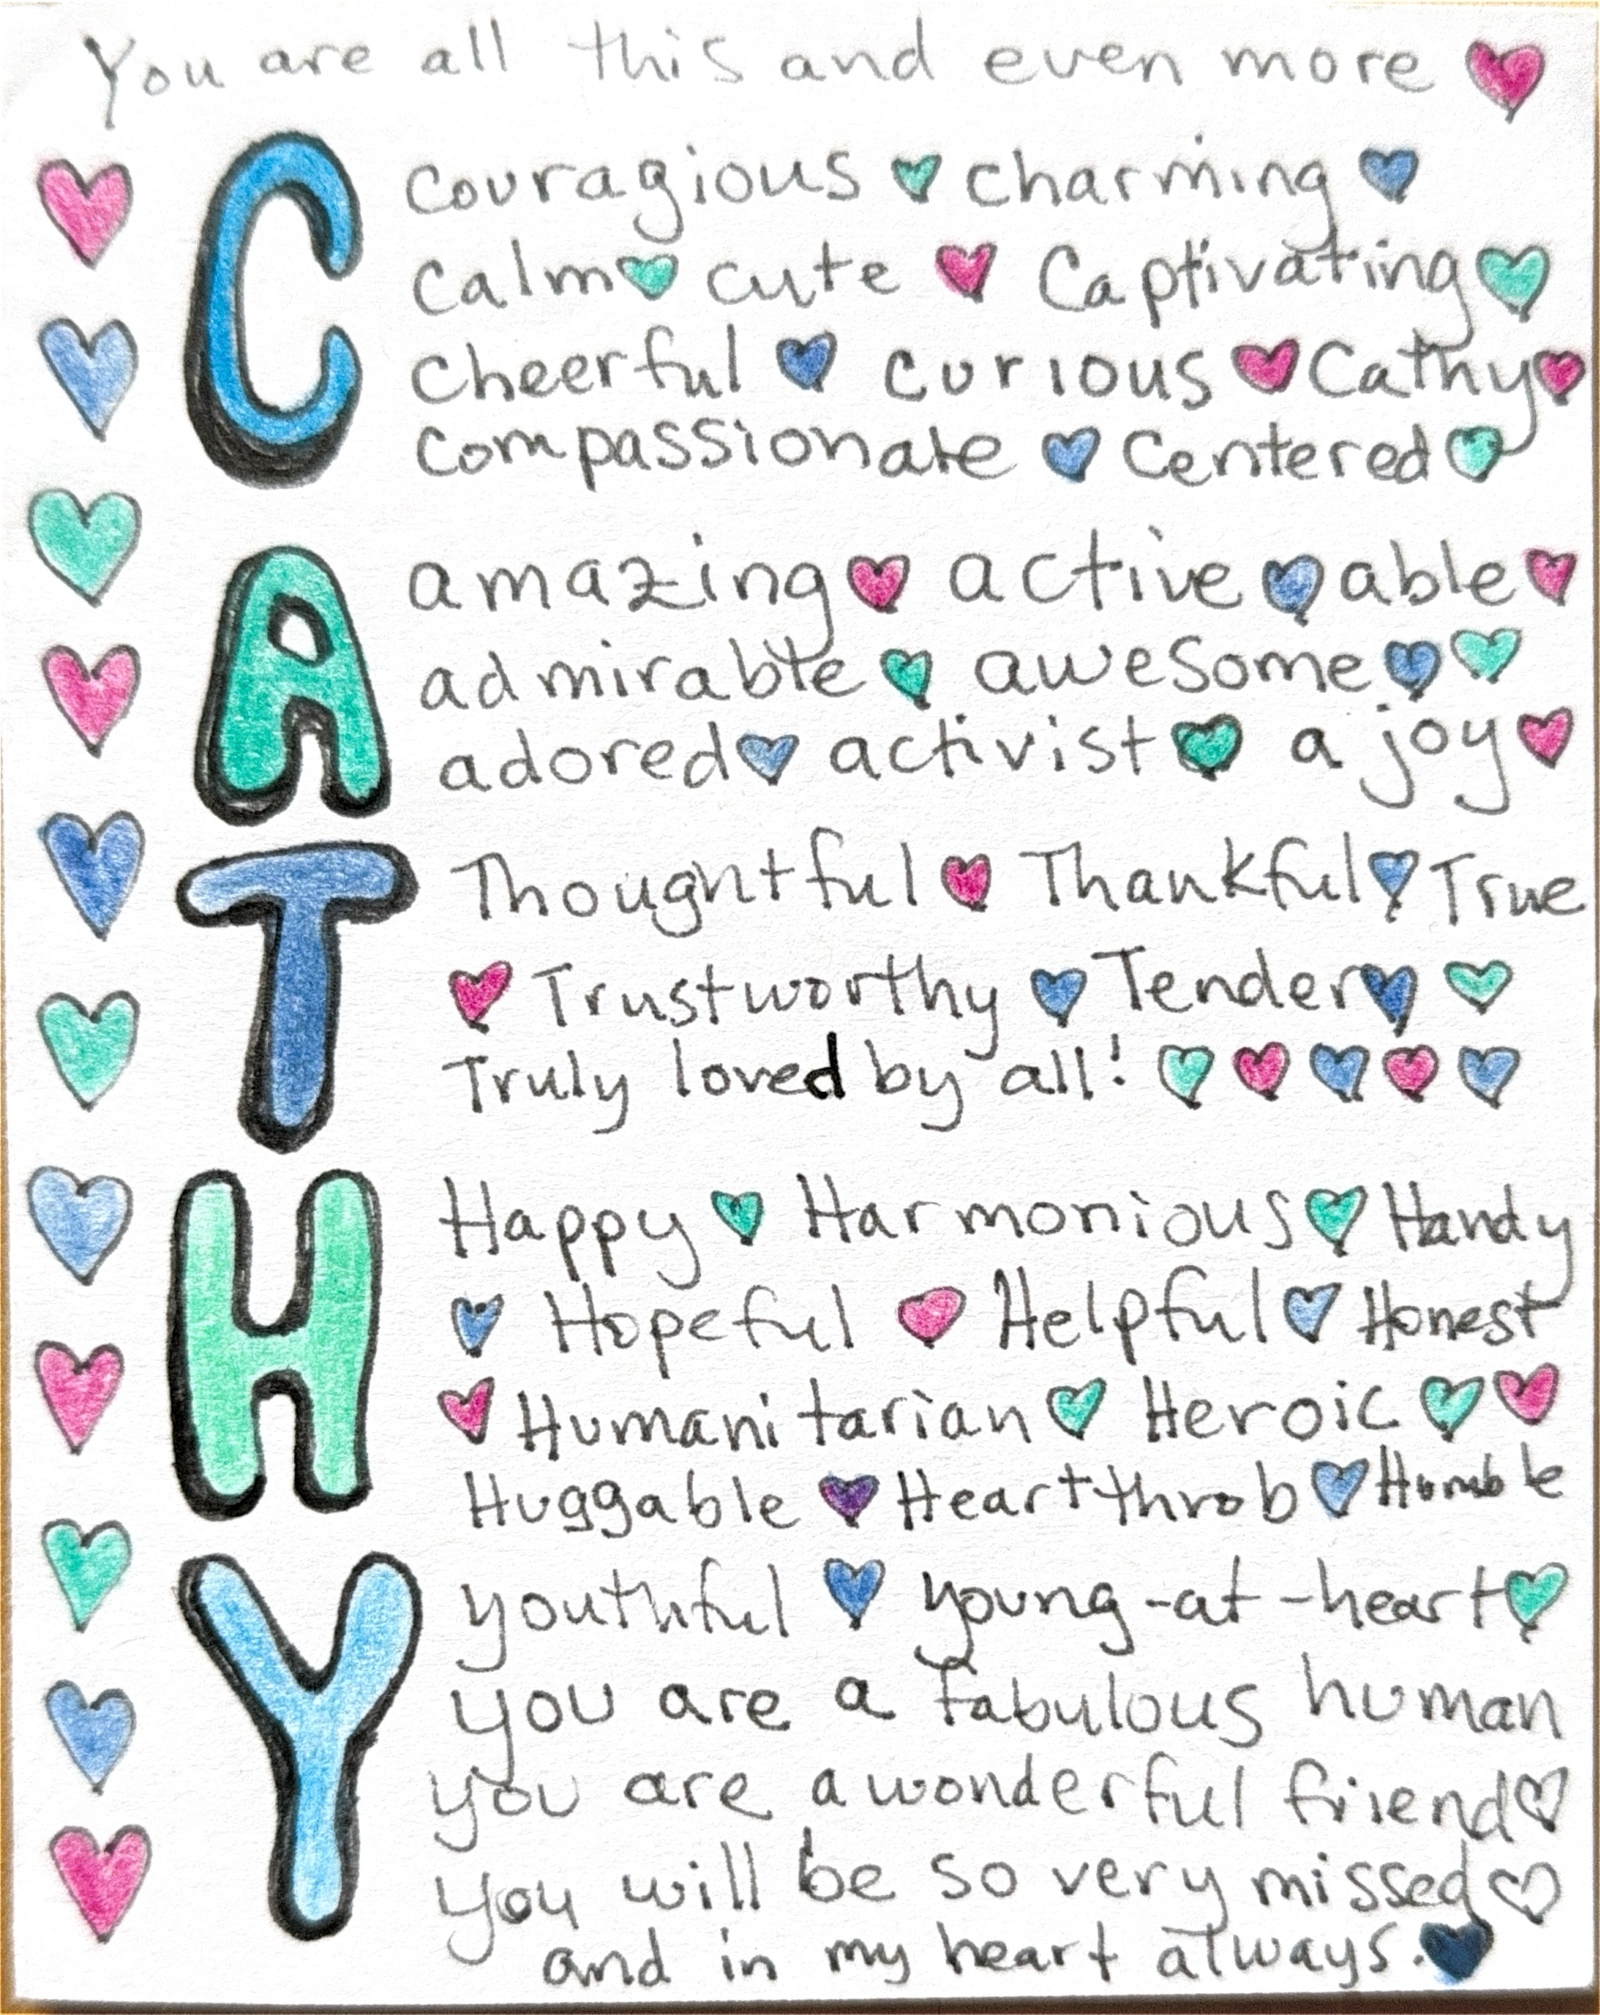 You are all this and even more
C
couragious charming
Calm cute Captivating
Cheerful curious Cathy
compassionate Centered
A
amazing active able
admirable awesome
adored activist a joy
T
Thoughtful Thankful True
Trustworthy Tender
Truly loved by all!
H
Happy Harmonious Handy
Hopeful Helpful Honest
Humanitarian Heroic
Huggable Heartthrob Humble
Y
youthful young-at-heart
you are a fabulous human
you are a wonderful friend
you will be so very missed
and in my heart always.